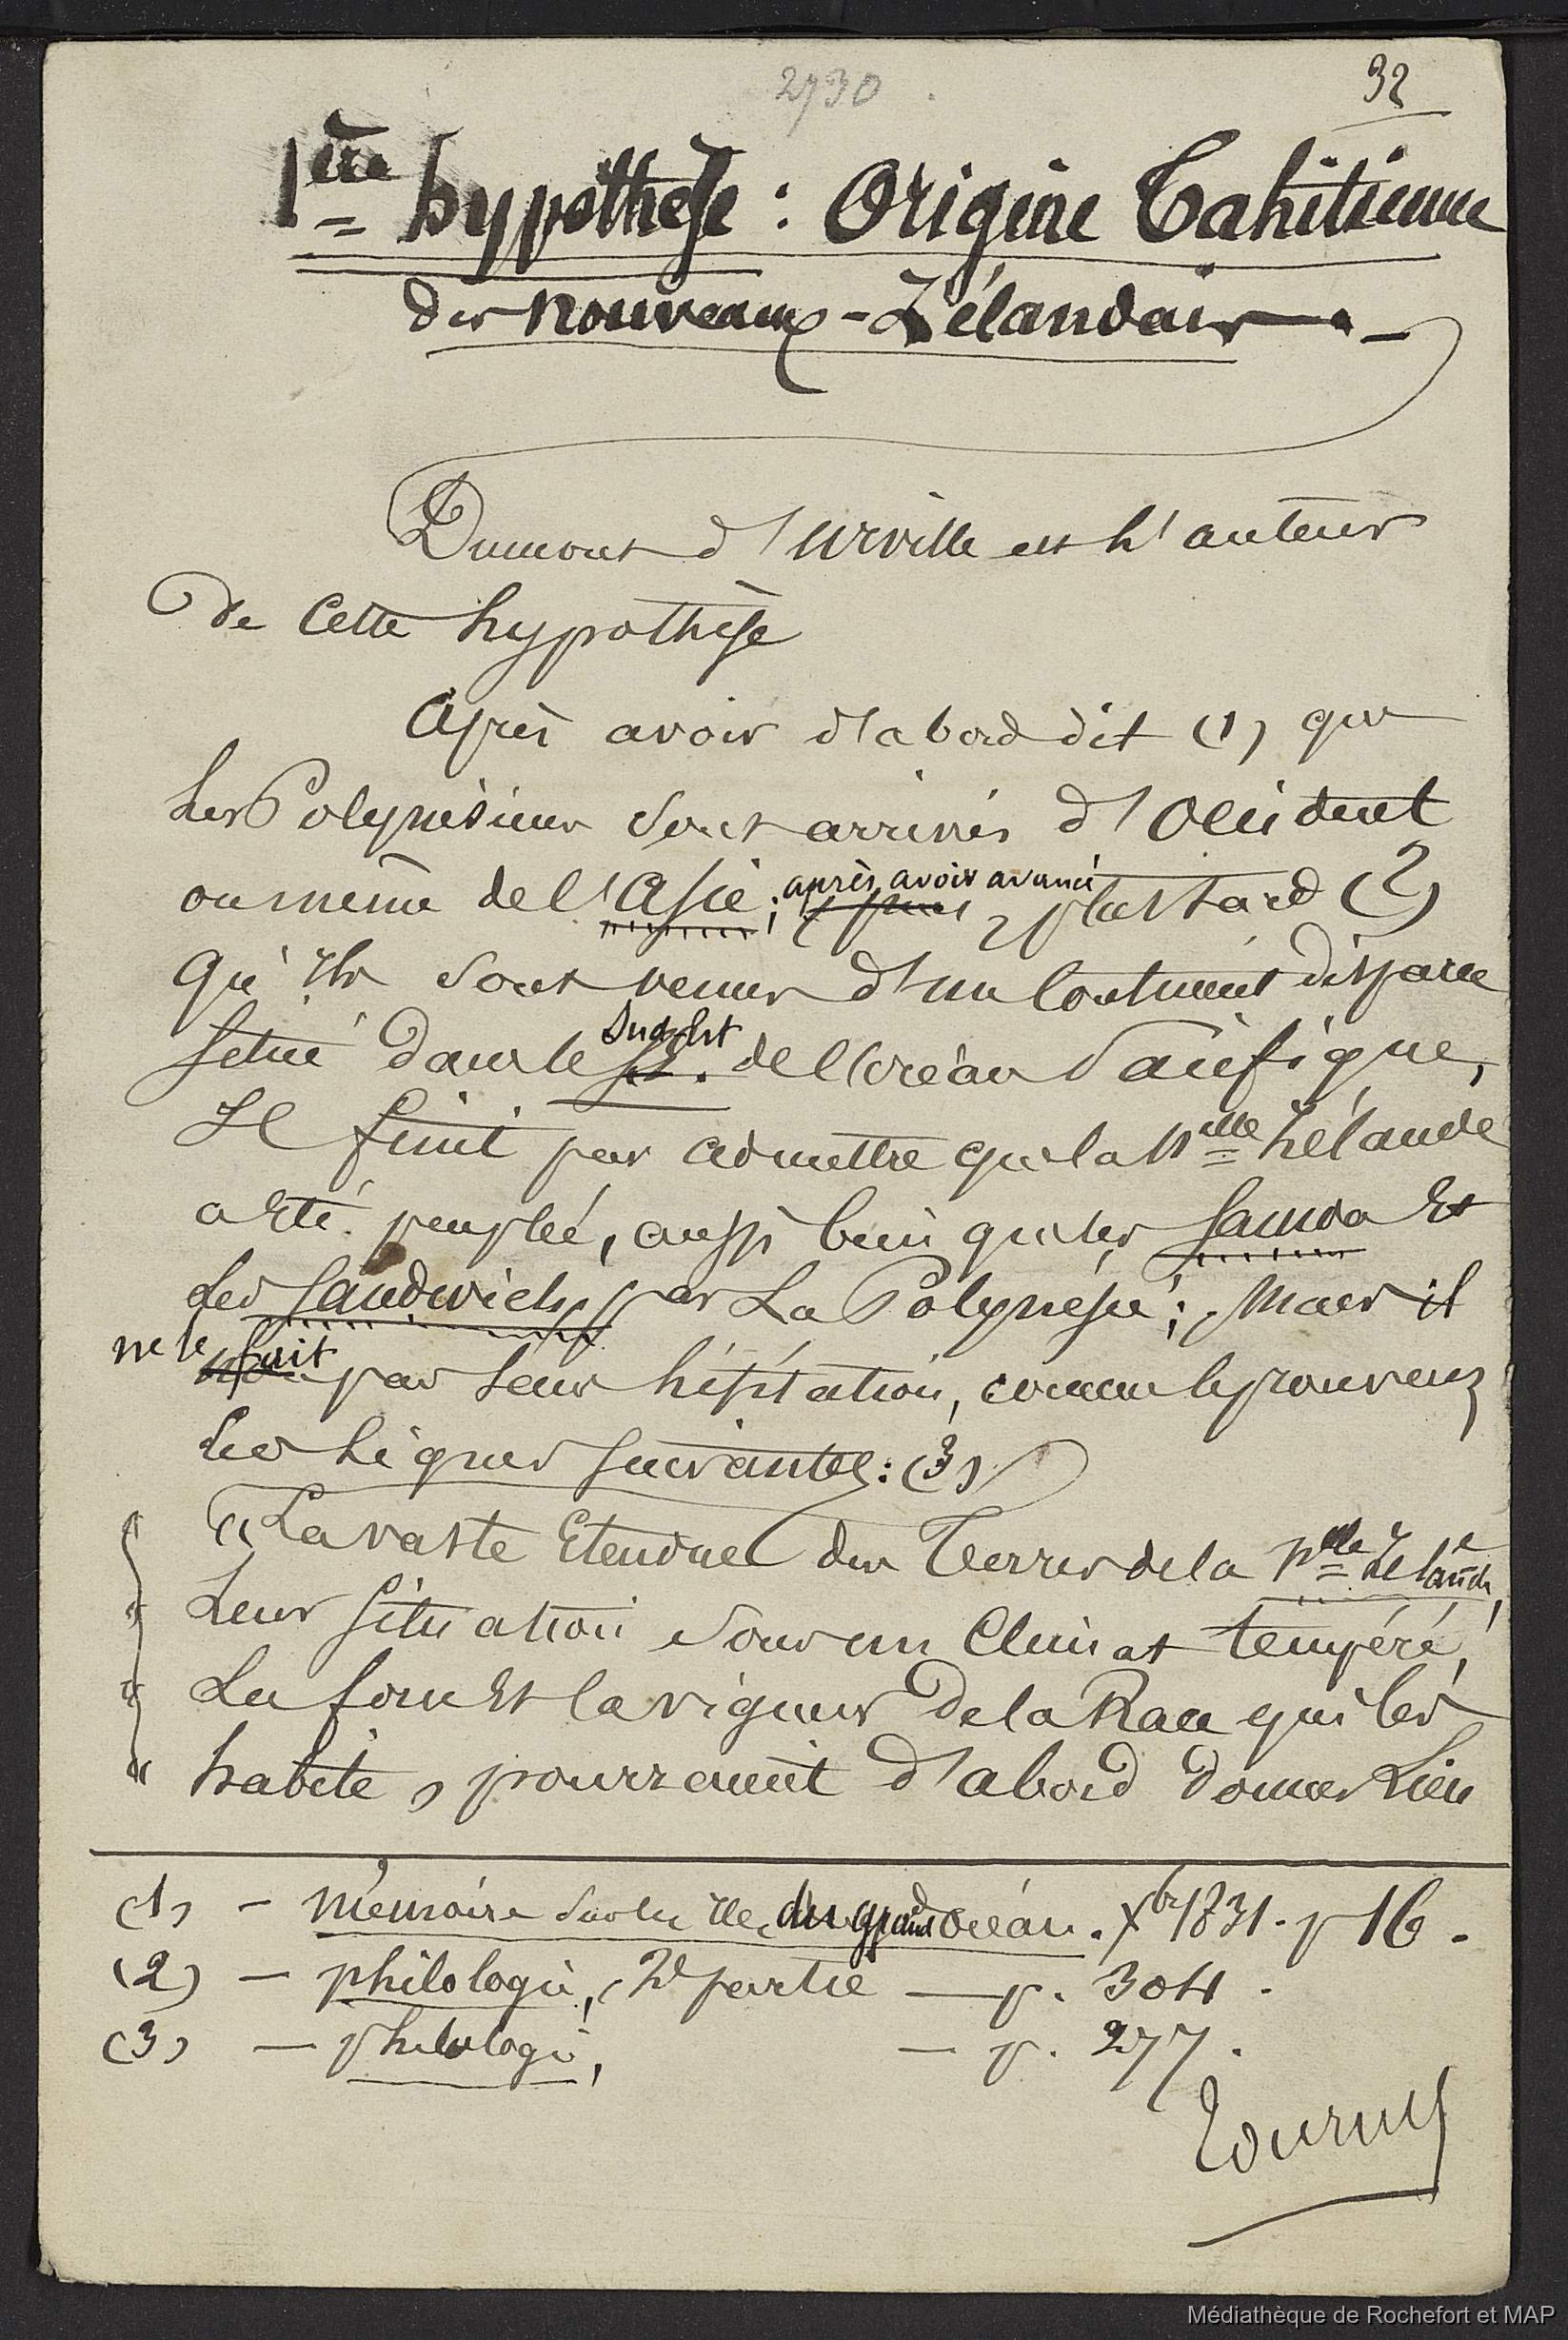 2730.
32
1ère hypothèse : Origine Tahitienne
des Nouveaux-Zélandais. —
Dumont d'Urville est l'auteur
de cette hypothèse
Après avoir d'abord dit (1) que
les Polynésiens sont arrivés d'Occident
ou même de l'Asie; après avoir avancé plus tard (2)
qu'ils sont venus d'un Continent disparu
situé dans le Sud-Est de l'Océan Pacifique,
Il finit par admettre que la Nlle Zélande
a été peuplée, aussi bien que les Samoa et
les Sandwich, par la Polynésie; Mais il
ne le fait pas sans hésitation, comme le prouvent
les lignes suivantes: (3)
« La vaste Etendue des Terres de la Nlle Zélande,
leur situation sous un Climat tempéré,
La force et la vigueur de la Race qui les
" habite, pourraient d'abord donner Lieu
(1) — Mémoire sur les Iles du grand Océan. Xbre 1831. p 16.
(2) — philologie, 2e partie — p. 304.
(3) — philologie, — p. 277.
Tournez
Médiathèque de Rochefort et MAP